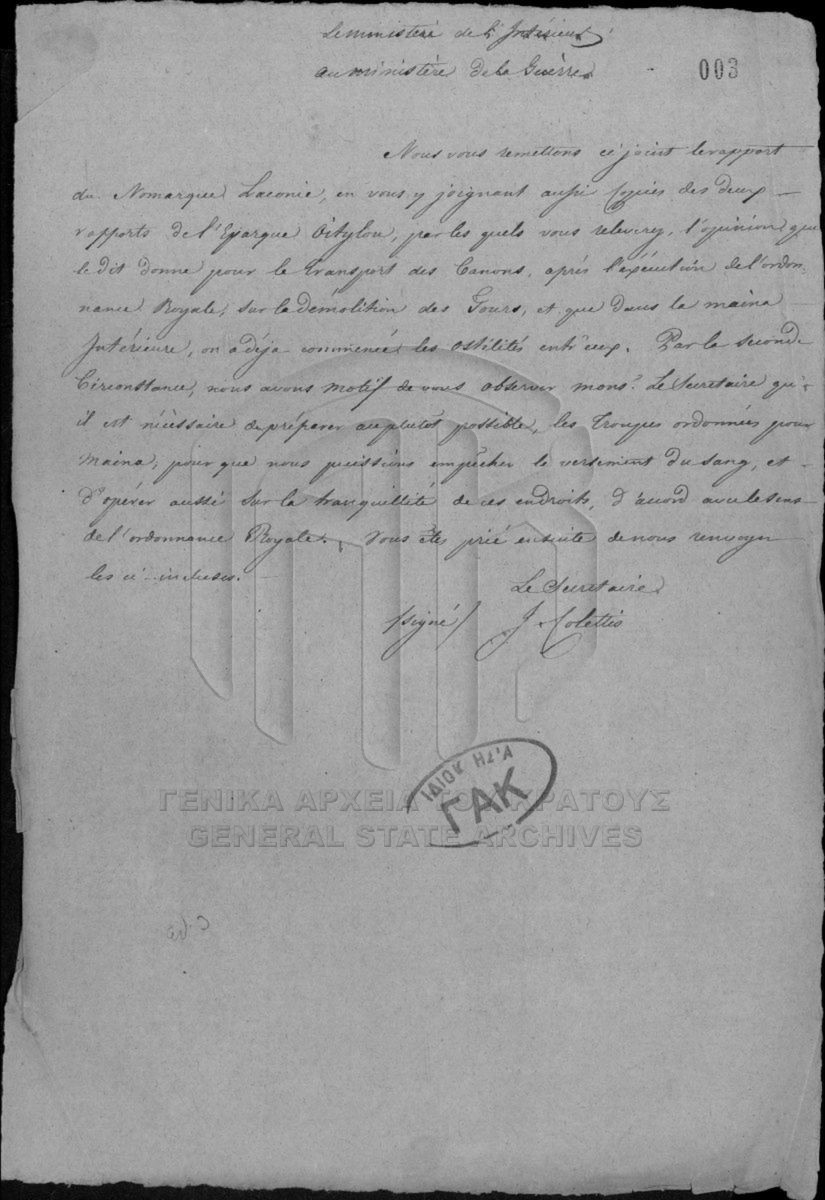 Le ministère de l'Intérieur
au ministère de la Guèrre.
003
Nous vous remettons ci joint le rapport
du Nomarque Laconie, en vous y joignant aussi Copies des deux
rapports de l'Eparque Oitylou, par les quels vous releverez, l'opinion que
le dit donne pour le transport des Canons, après l'exécution de l'ordon-
nance Royale, sur la démolition des Tours, et que dans la maina
Intérieure, on a déja commencé les ostilités entr'eux. Par la seconde
Circonstance, nous avons motif de vous observer mons.r Le Secretaire qu'
il est nécèssaire de préparer au plutôt possible, les Troupes ordonnées pour
maina, pour que nous puissions empêcher le versement du sang, et
d'opérer aussi sur la tranquillité de ces endroits, d'acord avec le sens
de l'ordonnance Royale. Vous ête prié ensuite de nous renvoyer
les ci-incluses.
Le Secretaire
signé/ J. Colettis
ΓΑΚ
ΓΕΝΙΚΑ ΑΡΧΕΙΑ ΤΟΥ ΚΡΑΤΟΥΣ
GENERAL STATE ARCHIVES